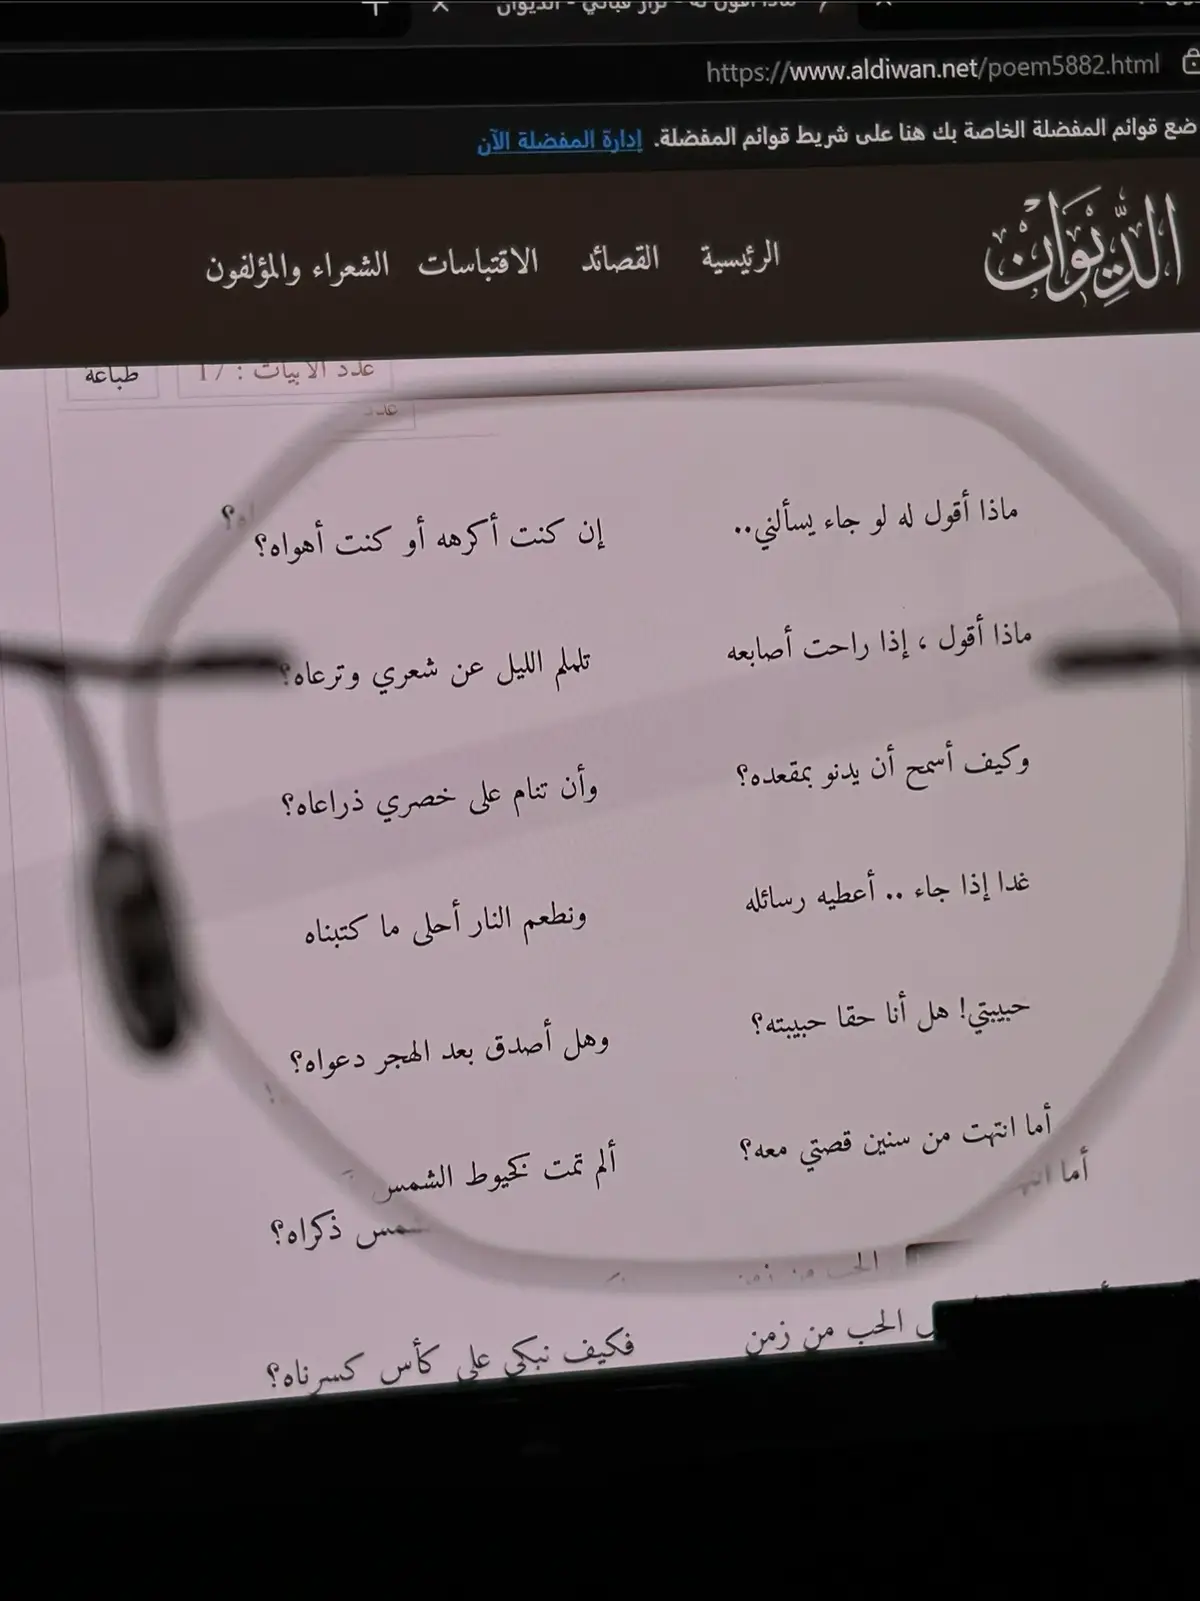 ماذا أقول له - نزار قباني - الديوان
https://www.aldiwan.net/poem5882.html
ضع قوائم المفضلة الخاصة بك هنا على شريط قوائم المفضلة. إدارة المفضلة الآن
الديوان
الرئيسية القصائد الاقتباسات الشعراء والمؤلفون
عدد الأبيات : 17 طباعة
عدد
ماذا أقول له لو جاء يسألني.. إن كنت أكرهه أو كنت أهواه؟
ماذا أقول ، إذا راحت أصابعه تلملم الليل عن شعري وترعاه؟
وكيف أسمح أن يدنو بمقعده؟ وأن تنام على خصري ذراعاه؟
غدا إذا جاء .. أعطيه رسائله ونطعم النار أحلى ما كتبناه
حبيبتي! هل أنا حقا حبيبته؟ وهل أصدق بعد الهجر دعواه؟
أما انتهت من سنين قصتي معه؟ ألم تمت كخيوط الشمس ذكراه؟
الحب من زمن فكيف نبكي على كأس كسرناه؟